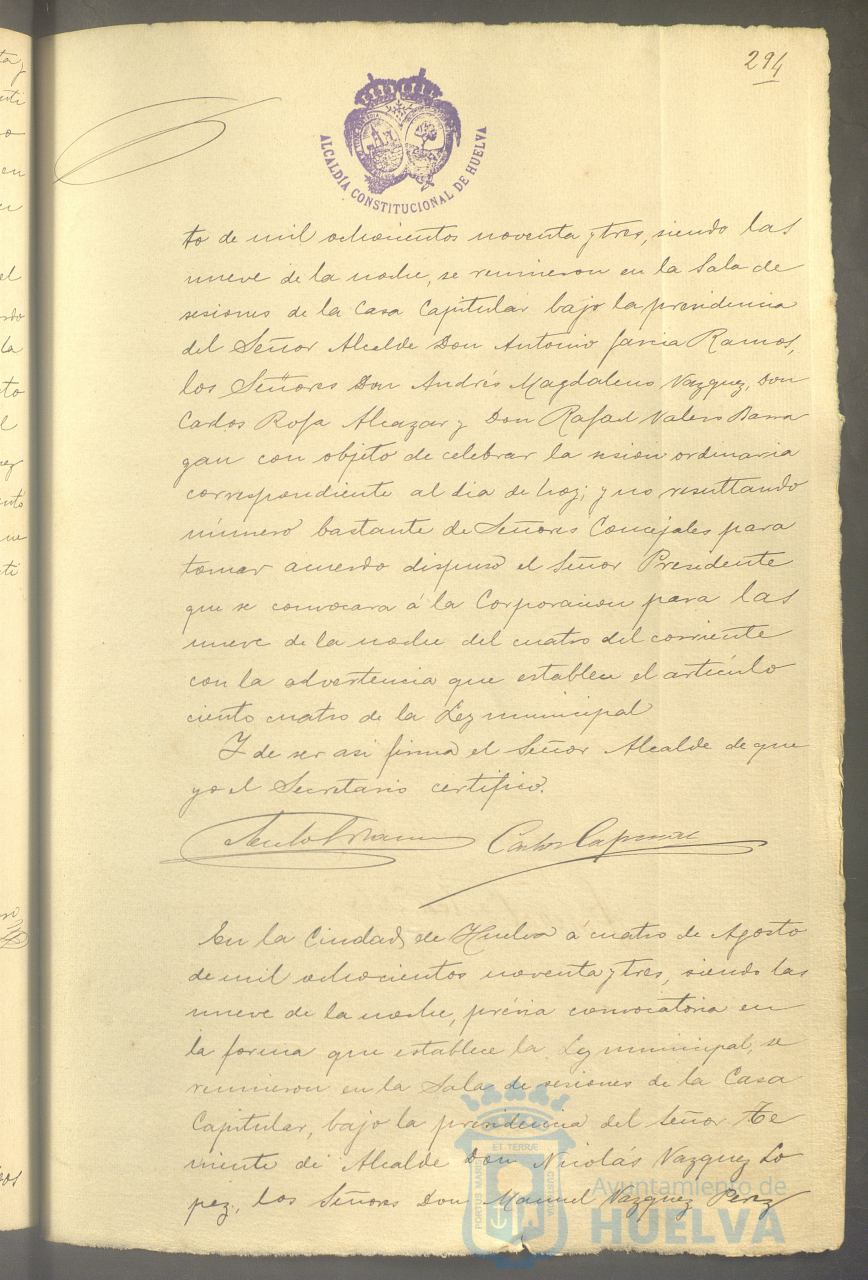 294
ALCALDÍA CONSTITUCIONAL DE HUELVA
to de mil ochocientos noventa y tres, siendo las
nueve de la noche, se reunieron en la Sala de
sesiones de la Casa Capitular bajo la presidencia
del Señor Alcalde Don Antonio Garcia Ramos,
los Señores Don Andrés Magdaleno Vazquez, Don
Carlos Rofa Alcazar y Don Rafael Valero Barra
gan con objeto de celebrar la sesion ordinaria
correspondiente al dia de hoy; y no resultando
número bastante de Señores Concejales para
tomar acuerdo dispuso el Señor Presidente
que se convocara á la Corporacion para las
nueve de la noche del cuatro del corriente
con la advertencia que establece el artículo
ciento cuatro de la Ley municipal
Y de ser asi firma el Señor Alcalde de que
yo el Secretario certifico.
En la Ciudad de Huelva á cuatro de Agosto
de mil ochocientos noventa y tres, siendo las
nueve de la noche, prévia convocatoria en
la forma que establece la Ley municipal, se
reunieron en la Sala de sesiones de la Casa
Capitular, bajo la presidencia del Señor Te
niente de Alcalde Don Nicolás Vazquez Lo
pez, los Señores Don Manuel Vazquez Perez
Ayuntamiento de
HUELVA